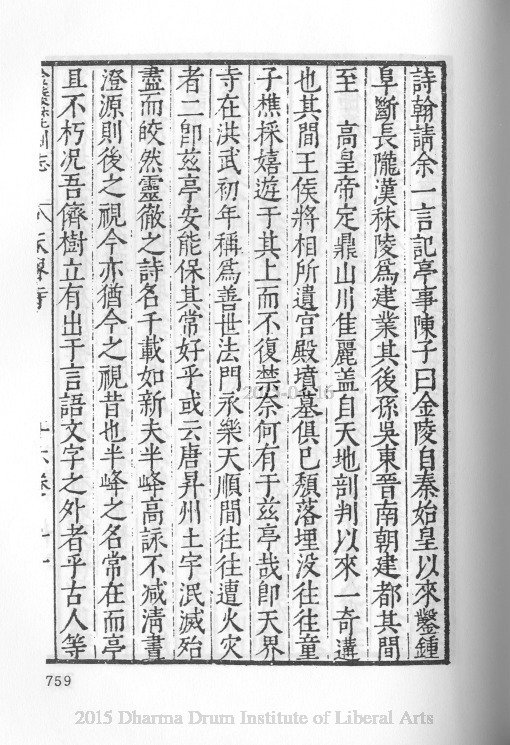 詩翰請余一言記亭事陳子曰金陵自秦始皇以來鑿鍾
阜斷長隴漢秣陵爲建業其後孫吳東晉南朝建都其間
至 高皇帝定鼎山川佳麗盖自天地剖判以來一奇遘
也其間王侯將相所遺宮殿墳墓俱已頽落埋没往往童
子樵採嬉遊于其上而不復禁奈何有于兹亭哉卽天界
寺在洪武初年稱爲善世法門永樂天順間往往遭火灾
者二卽兹亭安能保其常好乎或云唐昇州土宇泯滅殆
盡而皎然靈徹之詩名千載如新夫半峰高詠不减淸晝
澄源則後之視今亦猶今之視昔也半峰之名常在而亭
且不朽况吾儕樹立有出于言語文字之外者乎古人等
759
2015 Dharma Drum Institute of Liberal Arts